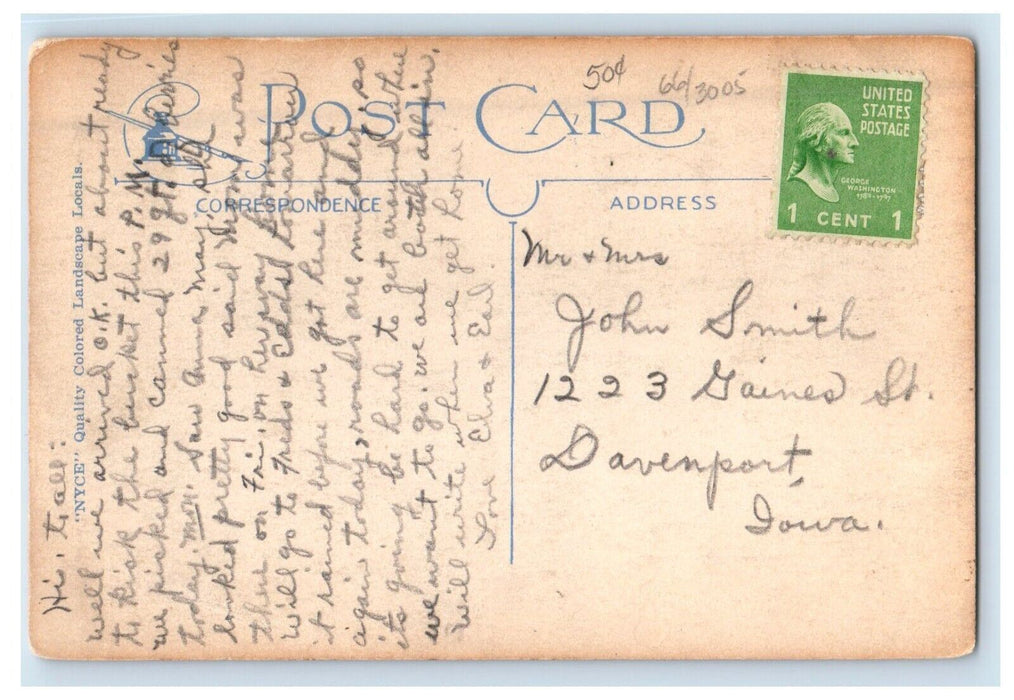 POST CARD
50¢
66/3005
UNITED
STATES
POSTAGE
GEORGE
WASHINGTON
1 CENT 1
"NYCE" Quality Colored Landscape Locals.
CORRESPONDENCE
ADDRESS
Hi. to all:
well we arrived O.K. but about ready
to kick the bucket this P.M.
we picked and canned 29 qts. of
today Mon. Saw Anna May, she
looked pretty good said Mom was
there on Fri. on her way home
will go to Freds & Eddies tomorrow
it rained before we got here and
again today, roads are muddy so
its going be hard to get around where
we want to go. we are both all in.
will write when we get home
Love Elva & Earl.
Mr & Mrs
John Smith
1223 Gaines St.
Davenport,
Iowa.